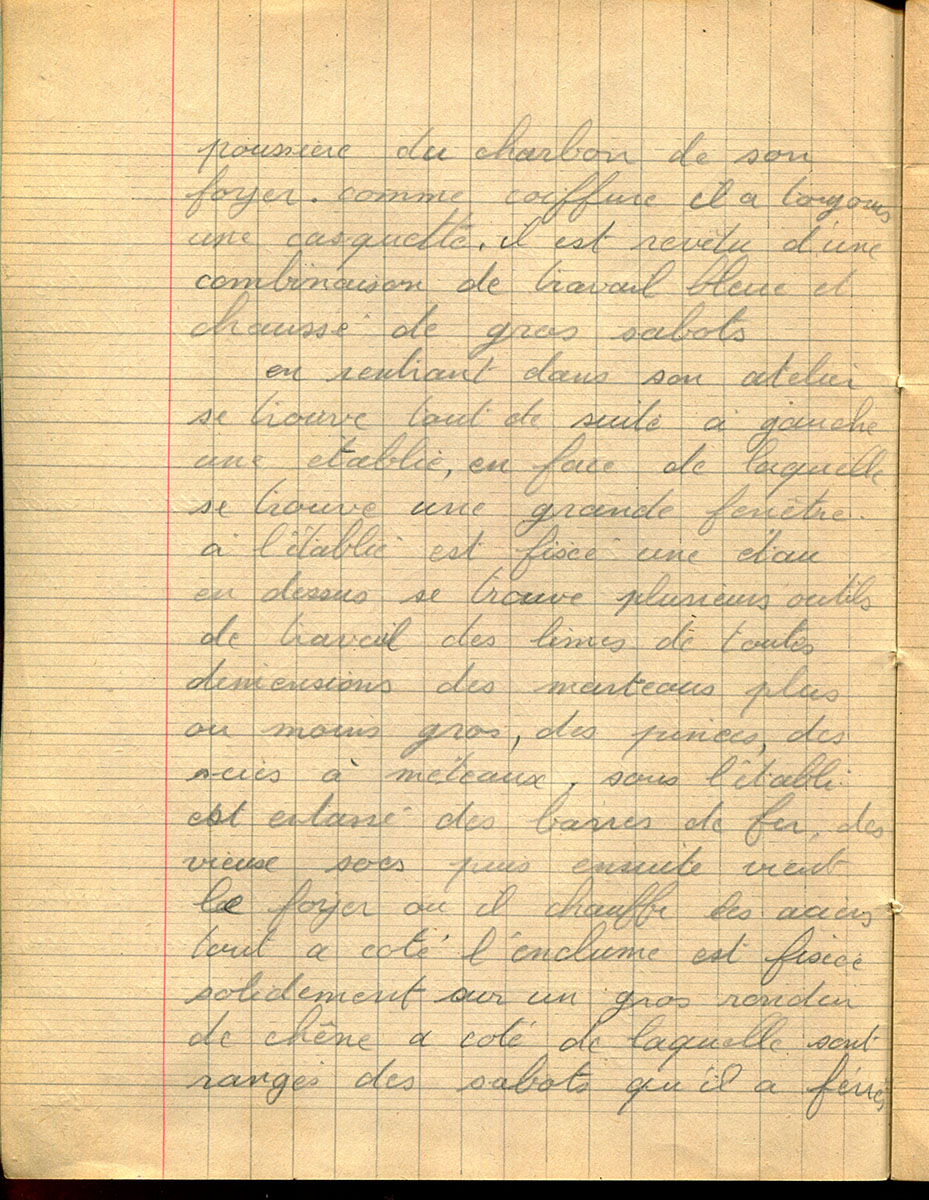 poussière du charbon de son
foyer. comme coiffure il a toujours
une casquette. il est revêtu d'une
combinaison de travail bleue et
chaussé de gros sabots
en rentrant dans son atelier
se trouve tout de suite a gauche
une établie, en face de laquelle
se trouve une grande fenêtre.
a l'établie est fixcé une étau
en dessus se trouve plusieurs outils
de travail des limes de toutes
dimensions des marteaus plus
ou moins gros, des pinces, des
scies à méteaux, sous l'établi
est entassé des barres de fer, des
vieuse socs puis ensuite vient
le foyer ou il chauffe les aciers
tout a coté l'enclume est fixcée
solidement sur un gros rondin
de chêne a coté de laquelle sont
rangés des sabots qu'il a férrés